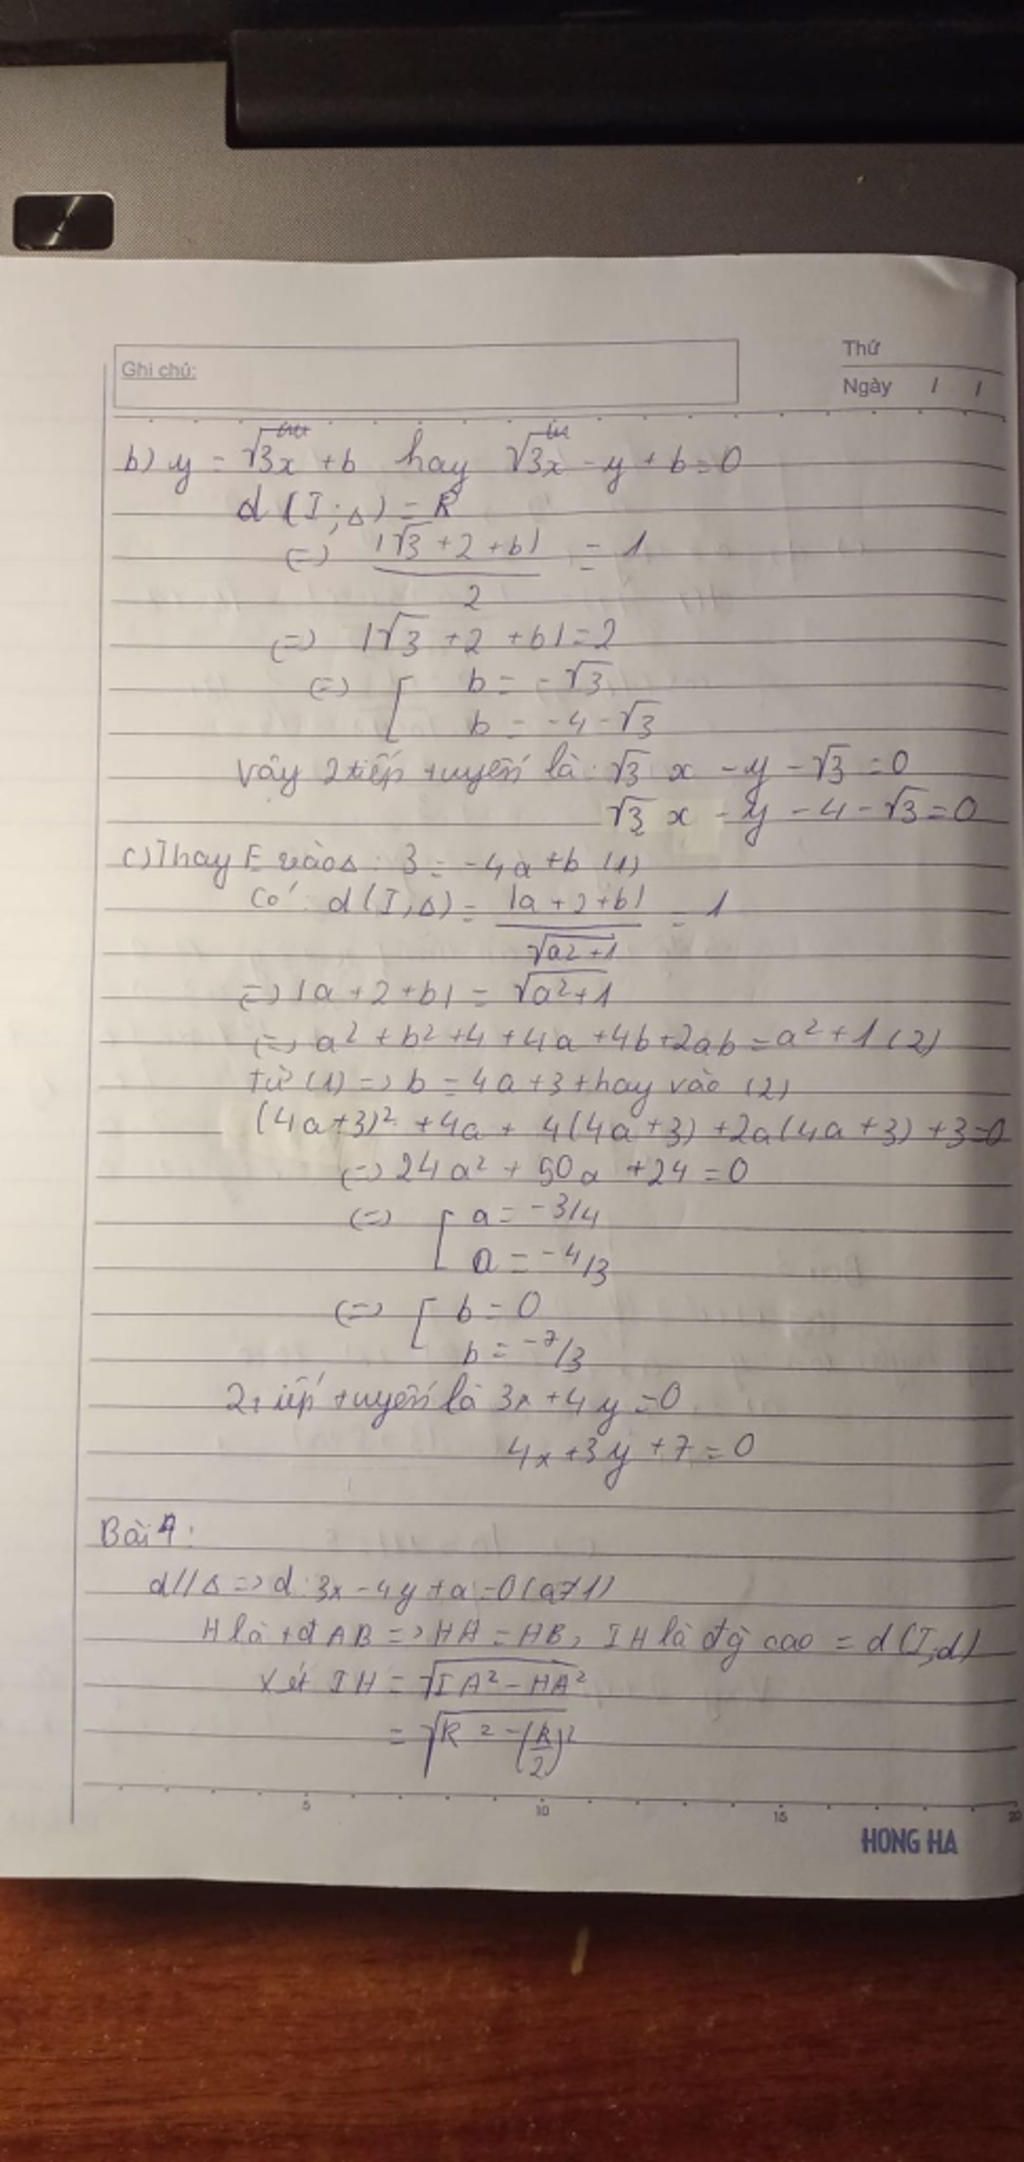 Ghi chú:
Thứ
Ngày / /
b) y = √3x + b hay √3x - y + b = 0
d (I; Δ) = R
(=) |√3 + 2 + b| / 2 = 1
(=) |√3 + 2 + b| = 2
(=) [ b = -√3
b = -4 - √3
Vậy 2 tiếp tuyến là: √3 x - y - √3 = 0
√3 x - y - 4 - √3 = 0
c) Thay E vào Δ: 3 = -4a + b (1)
Có: d (I, Δ) = |a + 2 + b| / √a2 + 1 = 1
(=) |a + 2 + b| = √a² + 1
(=) a² + b² + 4 + 4a + 4b + 2ab = a² + 1 (2)
Từ (1) => b = 4a + 3 thay vào (2)
(4a + 3)² + 4a + 4(4a + 3) + 2a(4a + 3) + 3 = 0
(=) 24a² + 50a + 24 = 0
(=) [ a = -3/4
a = -4/3
(=) [ b = 0
b = -7/3
2 tiếp tuyến là 3x + 4y = 0
4x + 3y + 7 = 0
Bài 4:
d // Δ => d: 3x - 4y + a = 0 (a ≠ 1)
H là tđ AB => HA = HB, IH là đg cao = d (I, d)
Xét IH = √IA² - HA²
= √R² - (R/2)²
5 10 15 20
HONG HA